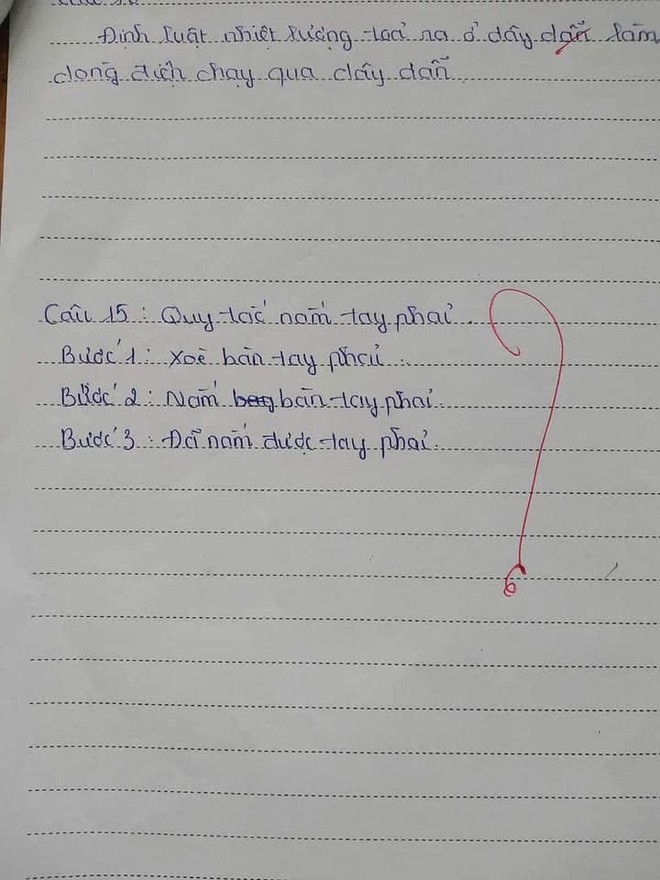 Định luật nhiệt lượng toả ra ở dây dẫn làm
dòng điện chạy qua dây dẫn
Câu 15: Quy tắc nắm tay phải.
Bước 1: Xoè bàn tay phải.
Bước 2: Nắm bàn tay phải.
Bước 3: Đã nắm được tay phải.